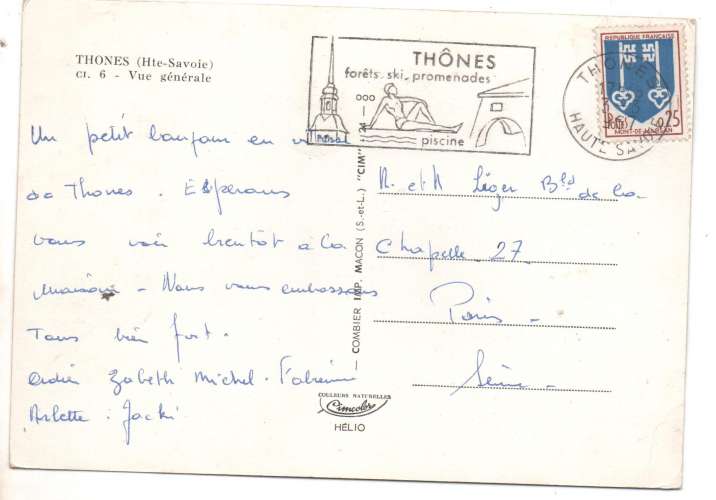 THONES (Hte-Savoie)
CI. 6 - Vue générale
THÔNES
forêts, ski, promenades
piscine
THONES
HAUTE SAVOIE
REPUBLIQUE FRANÇAISE
0,25
MONT-DE-MARSAN
Un petit bonjour en
de Thones. Espérons
vous voir bientôt à la
maison - Nous vous embrassons
Tous bien fort.
Zabeth Michel.
Arlette. Jacki
COMBIER IMP. MACON (S.-et-L.) "CIM"
M. et M Léger Bld de la
Chapelle - 27 -
Paris -
Seine -
COULEURS NATURELLES
Cimcolor
HÉLIO